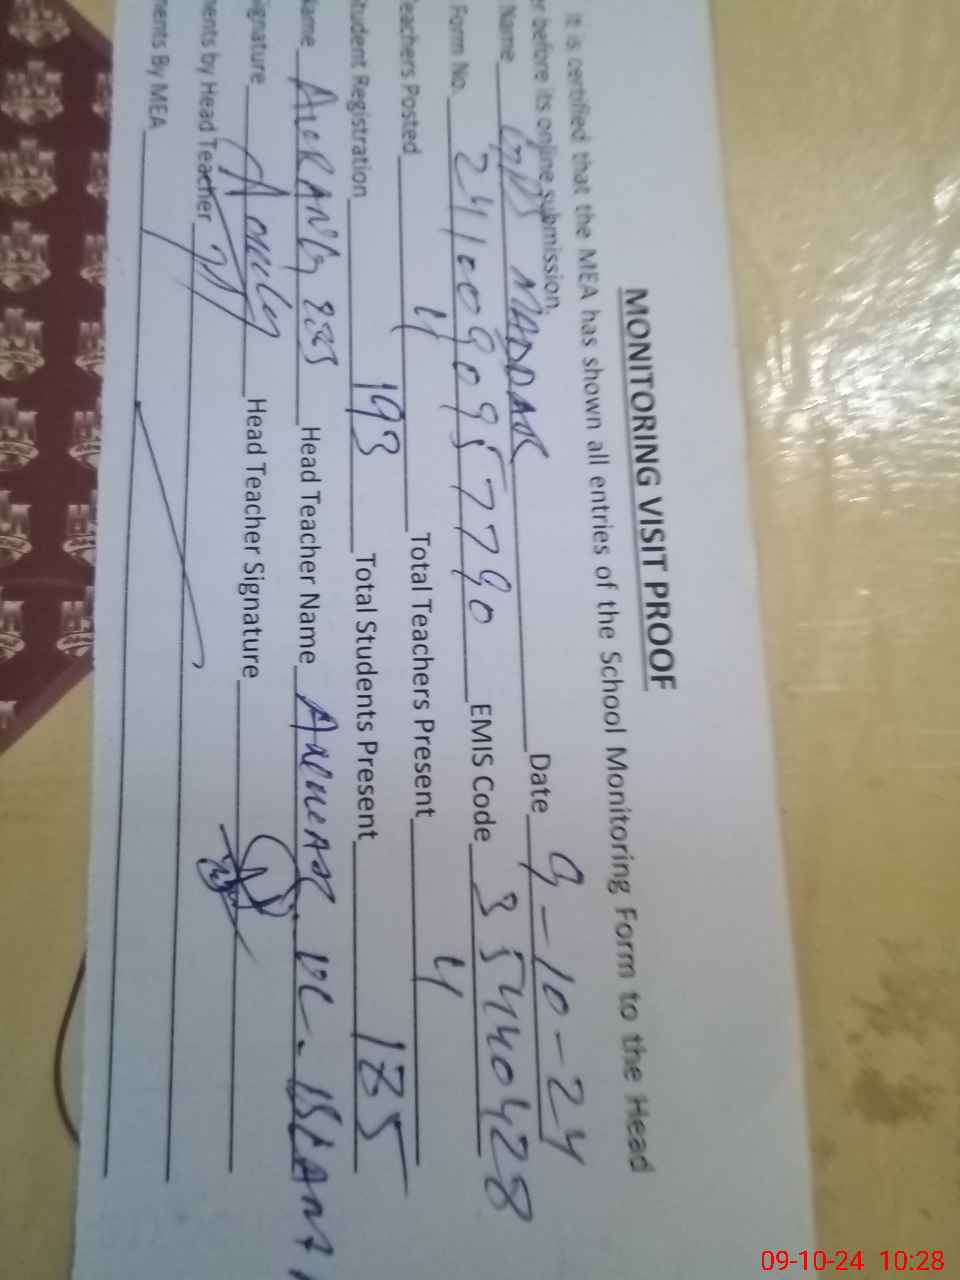 MONITORING VISIT PROOF
It is certified that the MEA has shown all entries of the School Monitoring Form to the Head
er before its online submission.
Name GPS MADDAR Date 9-10-24
Form No. 2410090957790 EMIS Code 35440428
eachers Posted 4 Total Teachers Present 4
tudent Registration 193 Total Students Present 185
Name Head Teacher Name
ignature Head Teacher Signature
nents by Head Teacher
nents By MEA
09-10-24 10:28